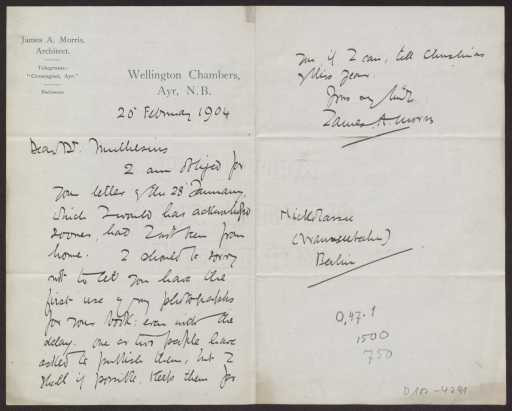 James A. Morris,
Architect.
Telegrams:
Wellington Chambers,
Ayr, N.B.
25 February 1904
Dear Dr. Muthesius
I am obliged for
your letter of the 28 January,
which I would has acknowledged
sooner, had I not been from
home. I should be sorry
not to let you have the
first use of my photographs
for your book: even with the
delay. One or two people have
asked to publish them, but I
shall if possible, keep them for
you if I can, till Christmas
of this year.
Yours
James A. Morris
Nicolassee
(Wannseebahn)
Berlin
0,47.1
1500
750